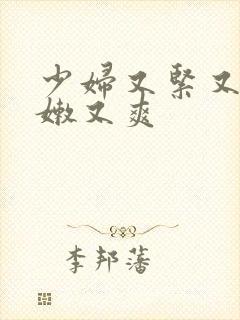 少婦又緊又
嫩又爽
李邦藩